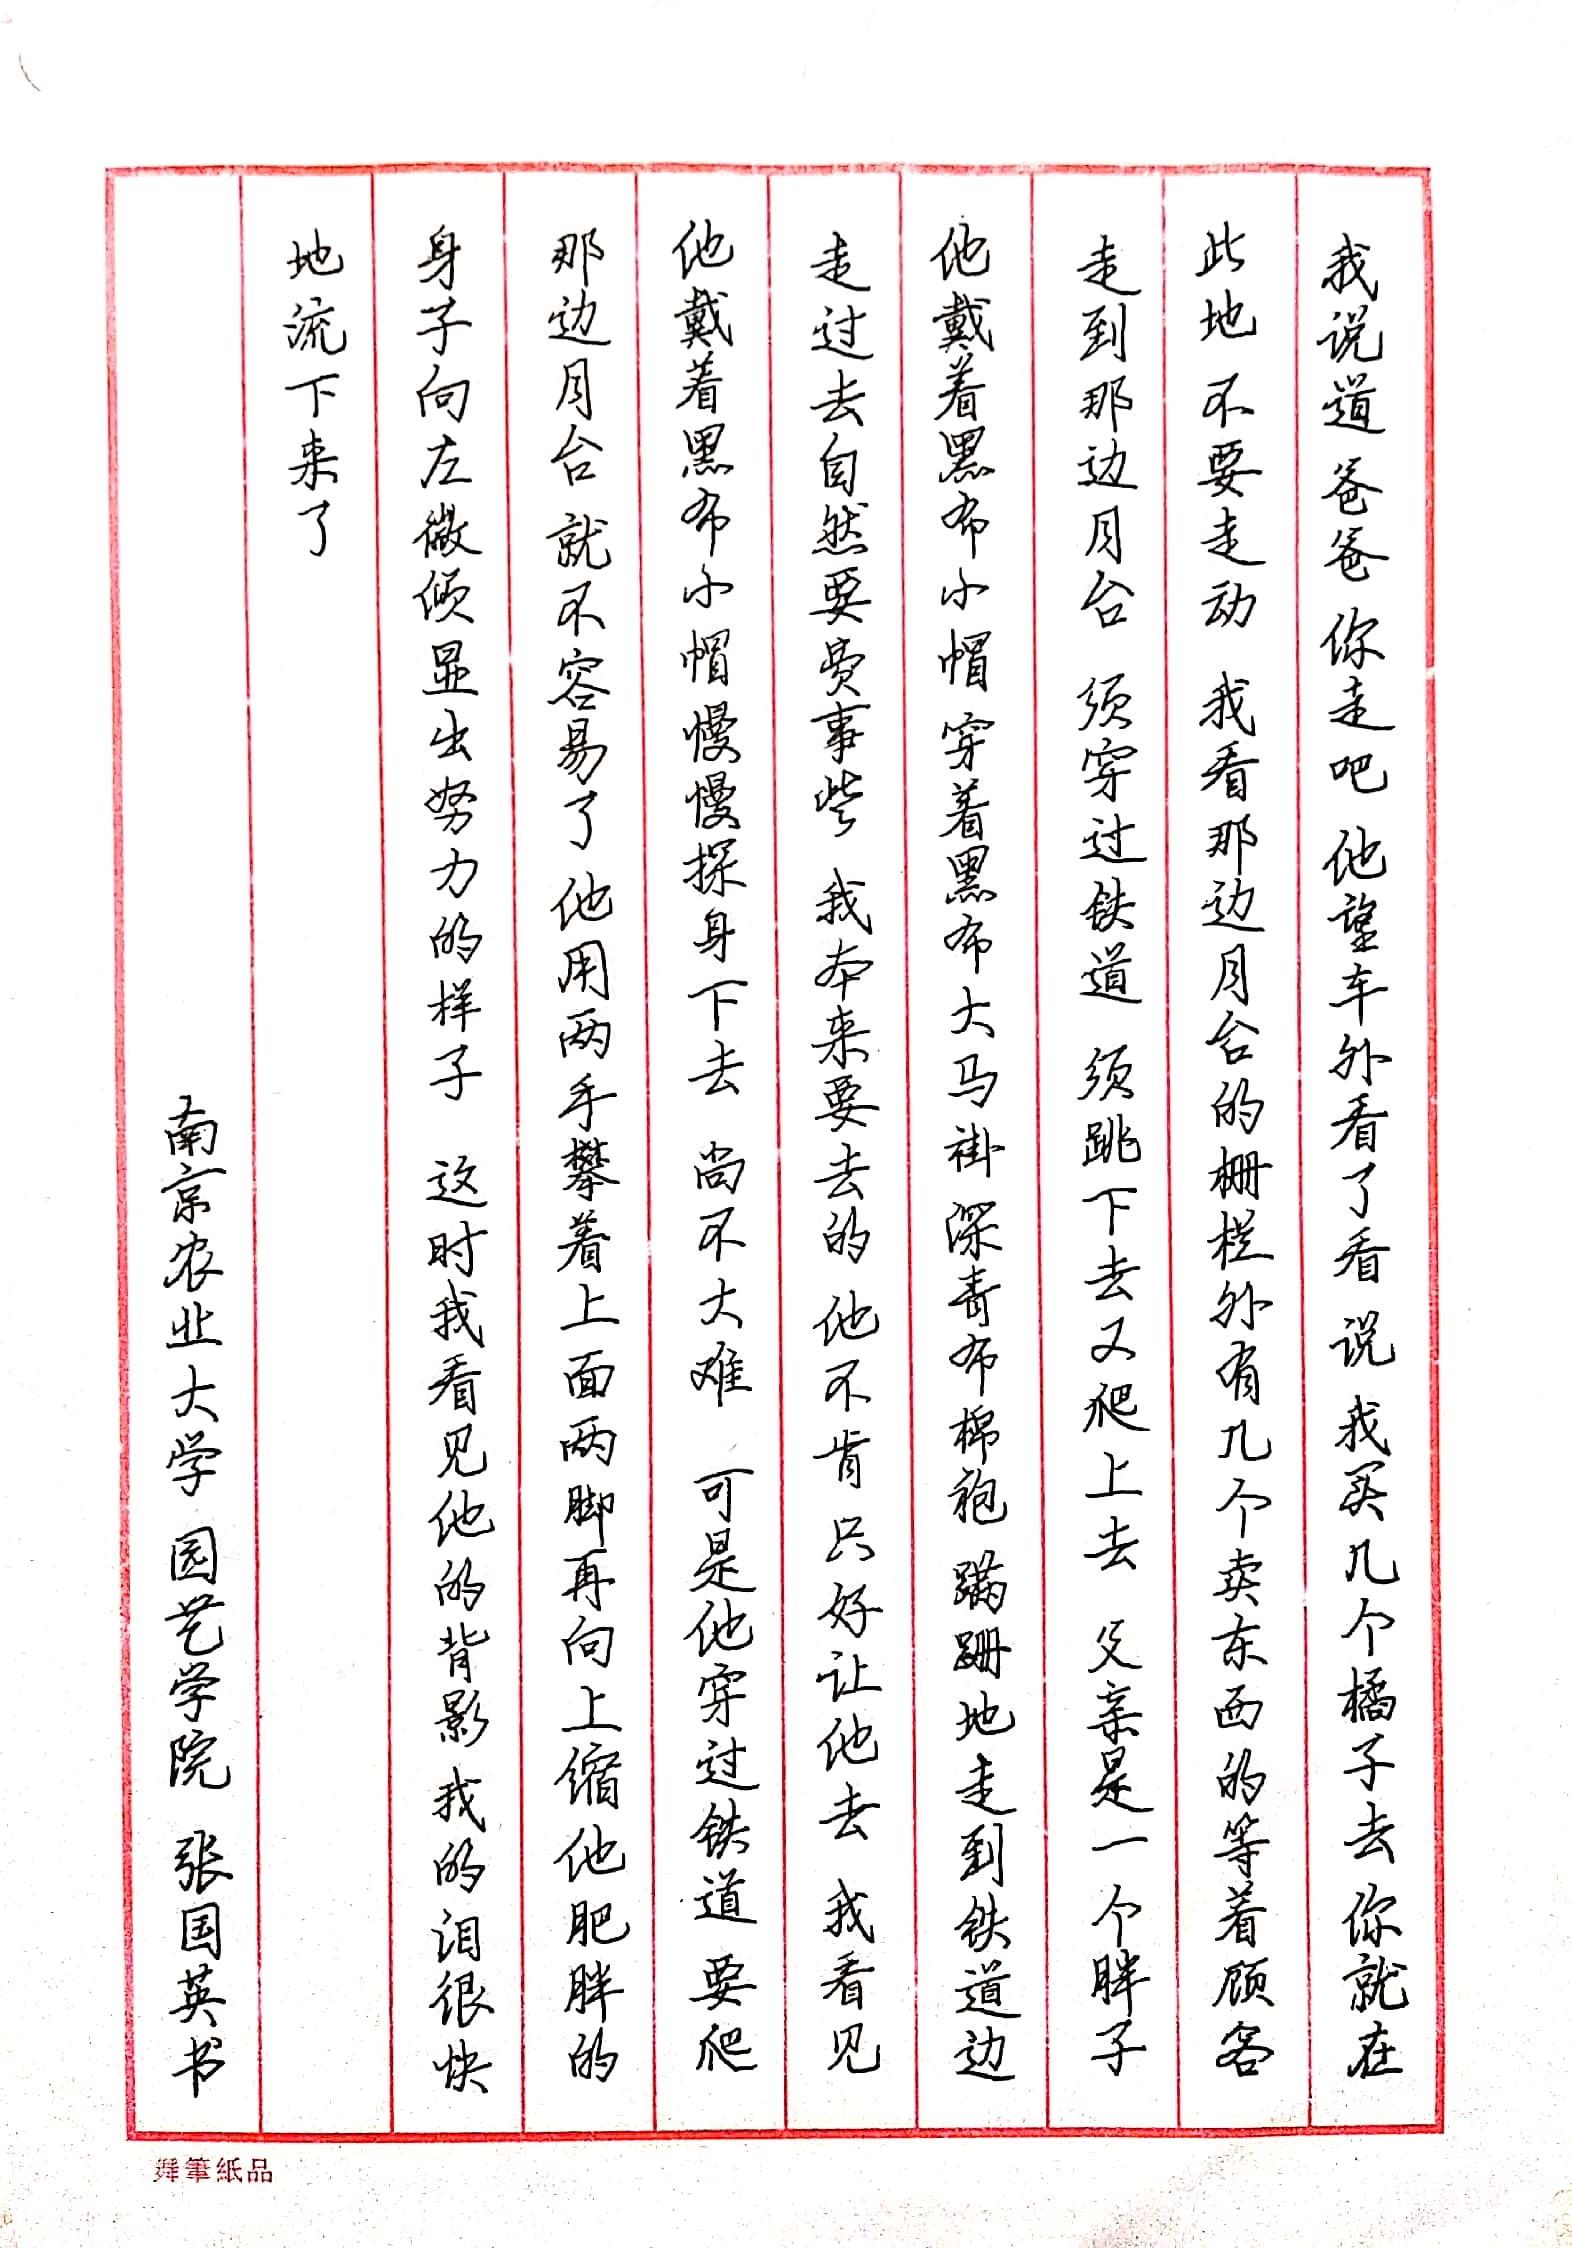 我说道 爸爸 你走吧 他望车外看了看 说 我买几个橘子去 你就在
此地 不要走动 我看那边月台的栅栏外有几个卖东西的等着顾客
走到那边月台 须穿过铁道 须跳下去又爬上去 父亲是一个胖子
他戴着黑布小帽 穿着黑布大马褂 深青布棉袍 蹒跚地走到铁道边
走过去自然要费事些 我本来要去的 他不肯 只好让他去 我看见
他戴着黑布小帽 慢慢探身下去 尚不大难 可是他穿过铁道 要爬
那边月台 就不容易了 他用两手攀着上面 两脚再向上缩 他肥胖的
身子向左微倾 显出努力的样子 这时我看见他的背影 我的泪很快
地流下来了
南京农业大学 园艺学院 张国英书
舞筆紙品